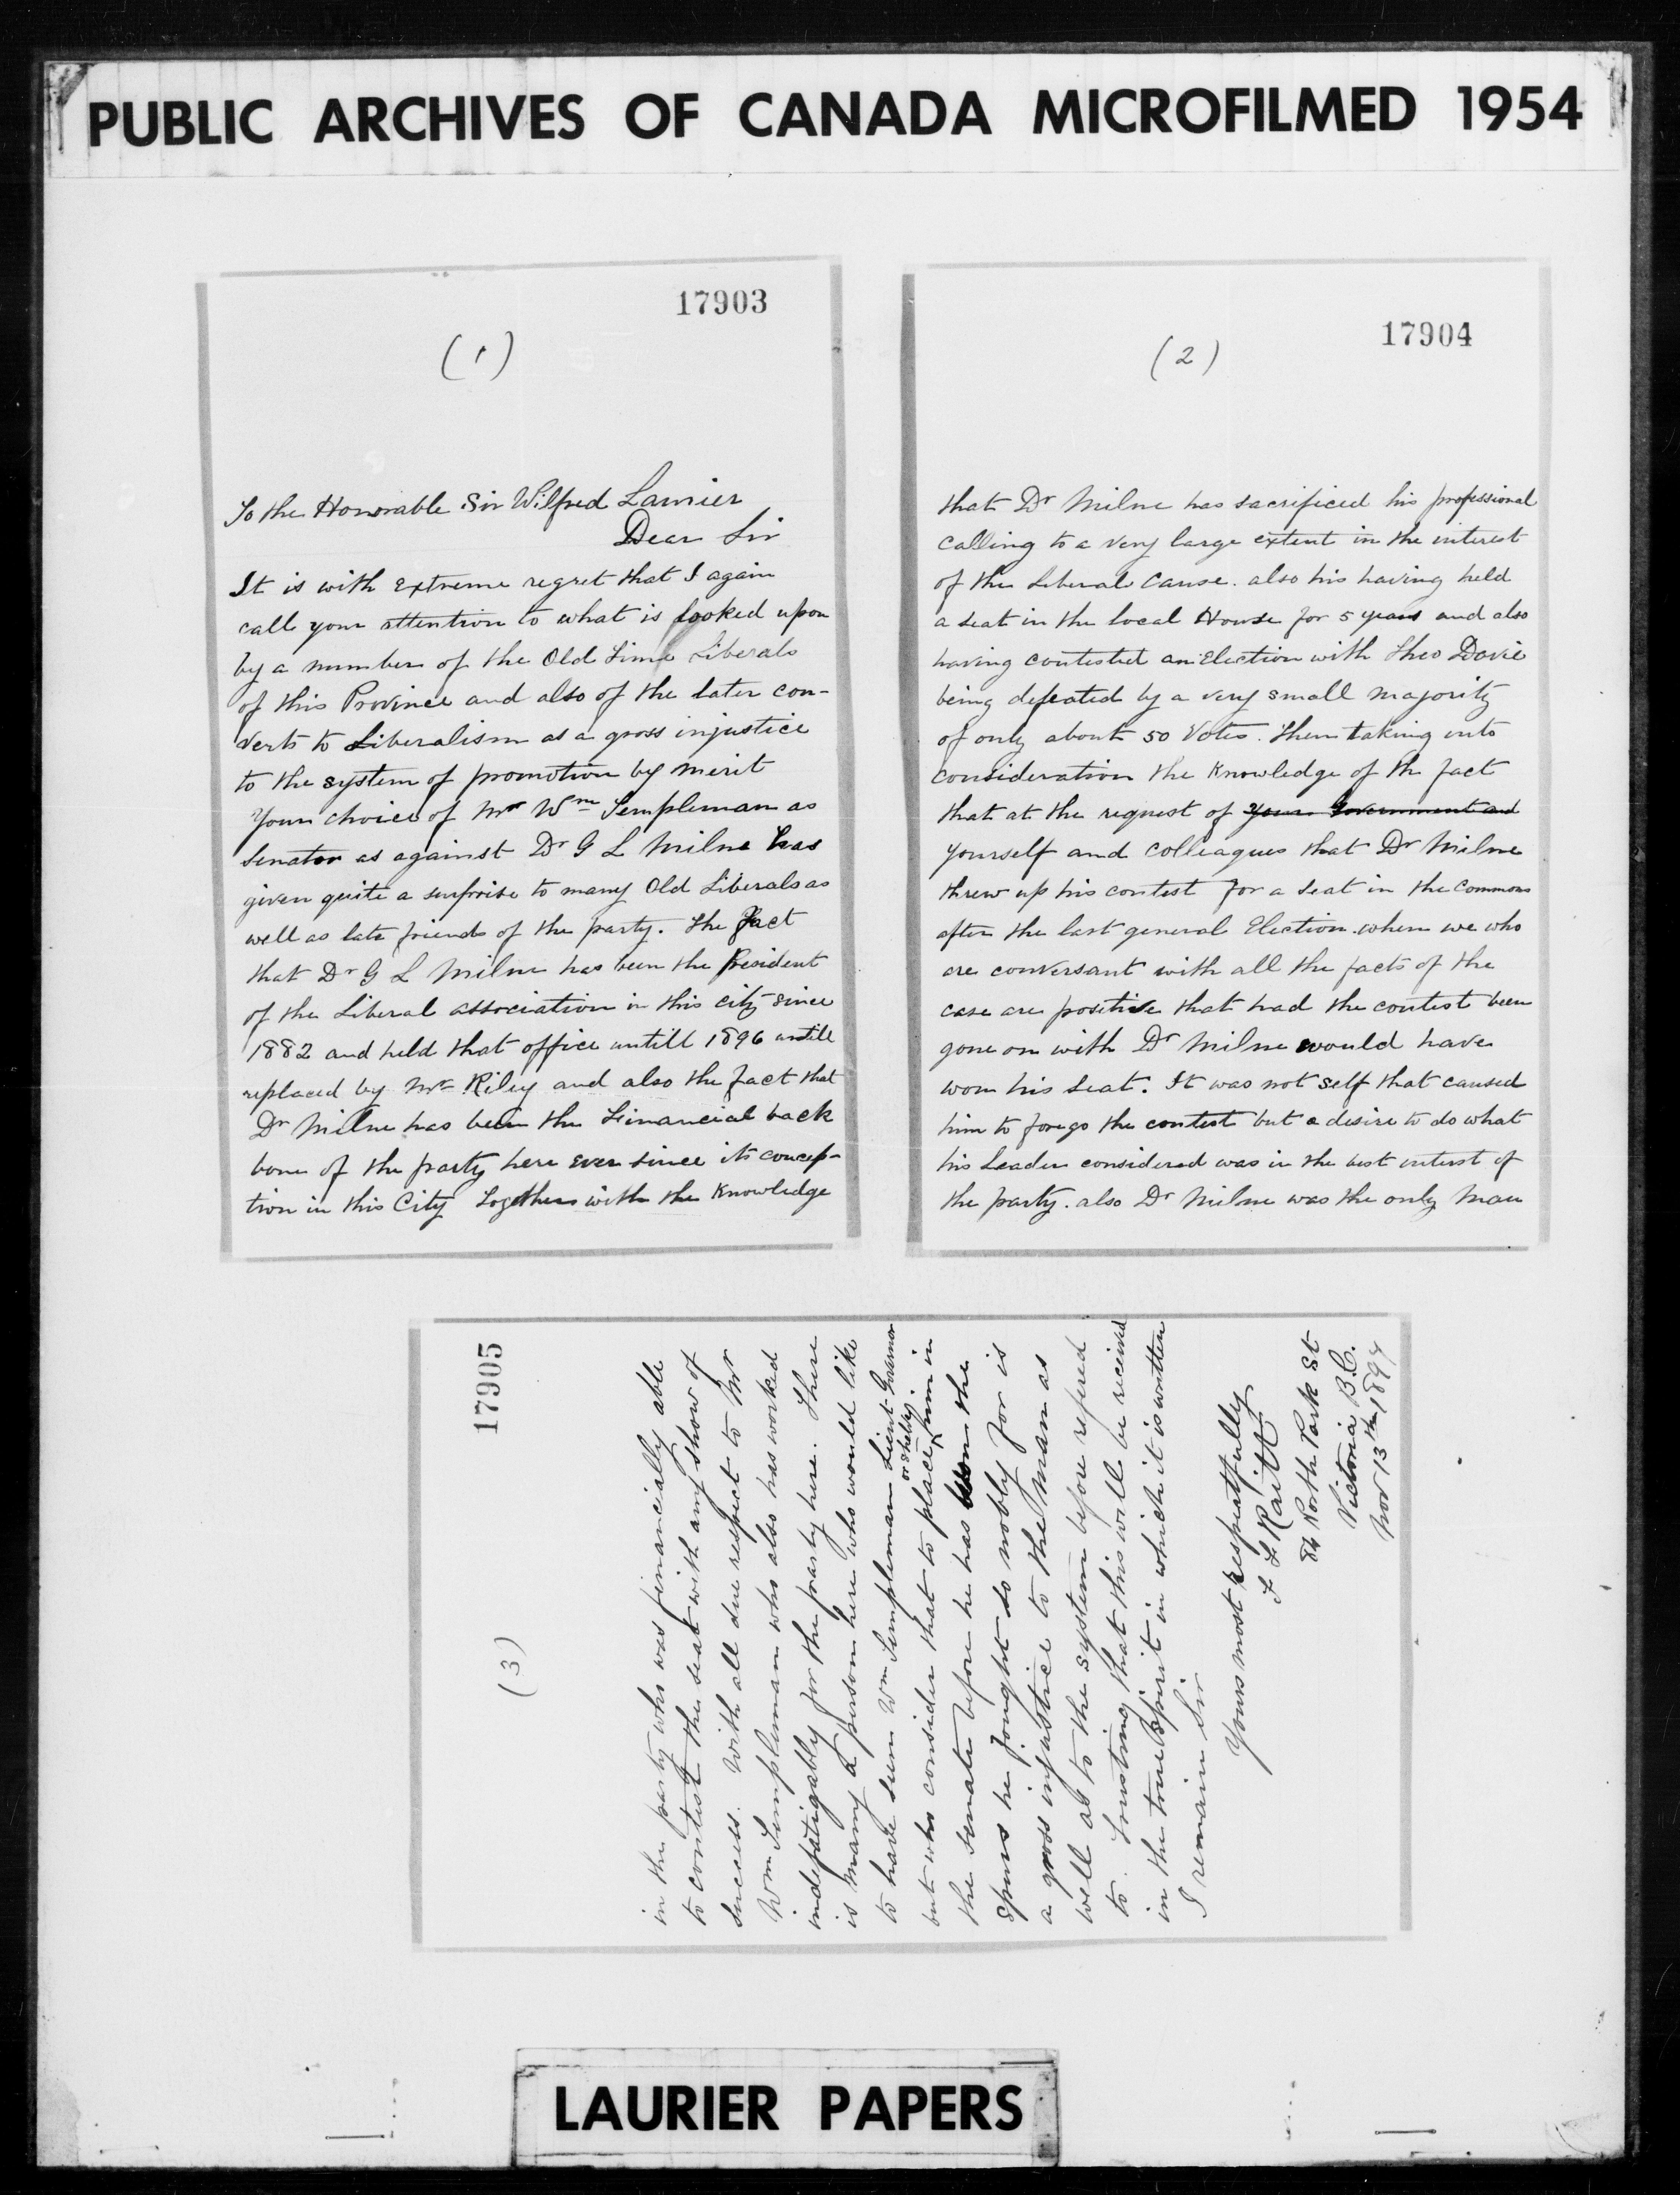 PUBLIC ARCHIVES OF CANADA MICROFILMED 1954
17903
(1)
To the Honorable Sir Wilfred Laurier
Dear Sir
It is with extreme regret that I again
call your attention to what is looked upon
by a number of the Old Time Liberals
of this Province and also of the later con-
verts to Liberalism as a gross injustice
to the system of promotion by merit
Your choice of Mr Wm Templeman as
Senator as against Dr G L Milne has
given quite a surprise to many Old Liberals as
well as late friends of the party. The fact
that Dr G L Milne has been the President
of the Liberal association in this city since
1882 and held that office untill 1896 untill
replaced by Mr Riley and also the fact that
Dr Milne has been the Financial back
bone of the party here ever since its concep-
tion in this City Together with the Knowledge
17904
(2)
that Dr Milne has sacrificed his professional
calling to a very large extent in the interest
of the Liberal cause. also his having held
a seat in the local House for 5 years and also
having contested an Election with Theo Davie
being defeated by a very small majority
of only about 50 Votes. Then taking into
consideration the Knowledge of the fact
that at the request of your Government and
yourself and colleagues that Dr Milne
threw up his contest for a seat in the Commons
after the last general Election when we who
are conversant with all the facts of the
case are positive that had the contest been
gone on with Dr Milne would have
won his seat. It was not self that caused
him to forego the contest but a desire to do what
his Leader considered was in the best interst of
the party. also Dr Milne was the only man
17905
(3)
in the party who was financially able
to contest the seat with any show of
success. With all due respect to Mr
Wm Templeman who also has worked
indefatigably for the party here. There
is many a person here who would like
to have seen Wm Templeman Lieut-Governor
but who consider that to place him in
the Senate before he has won the
Spurs he fought so nobly for is
a gross injustice to the man as
well as to the system before refered
to. Trusting that this will be received
in the true Spirit in which it is written
I remain Sir
Yours most respectfully
F L Raitt
86 North Park St
Victoria B.C.
Nov 13th 1897
LAURIER PAPERS